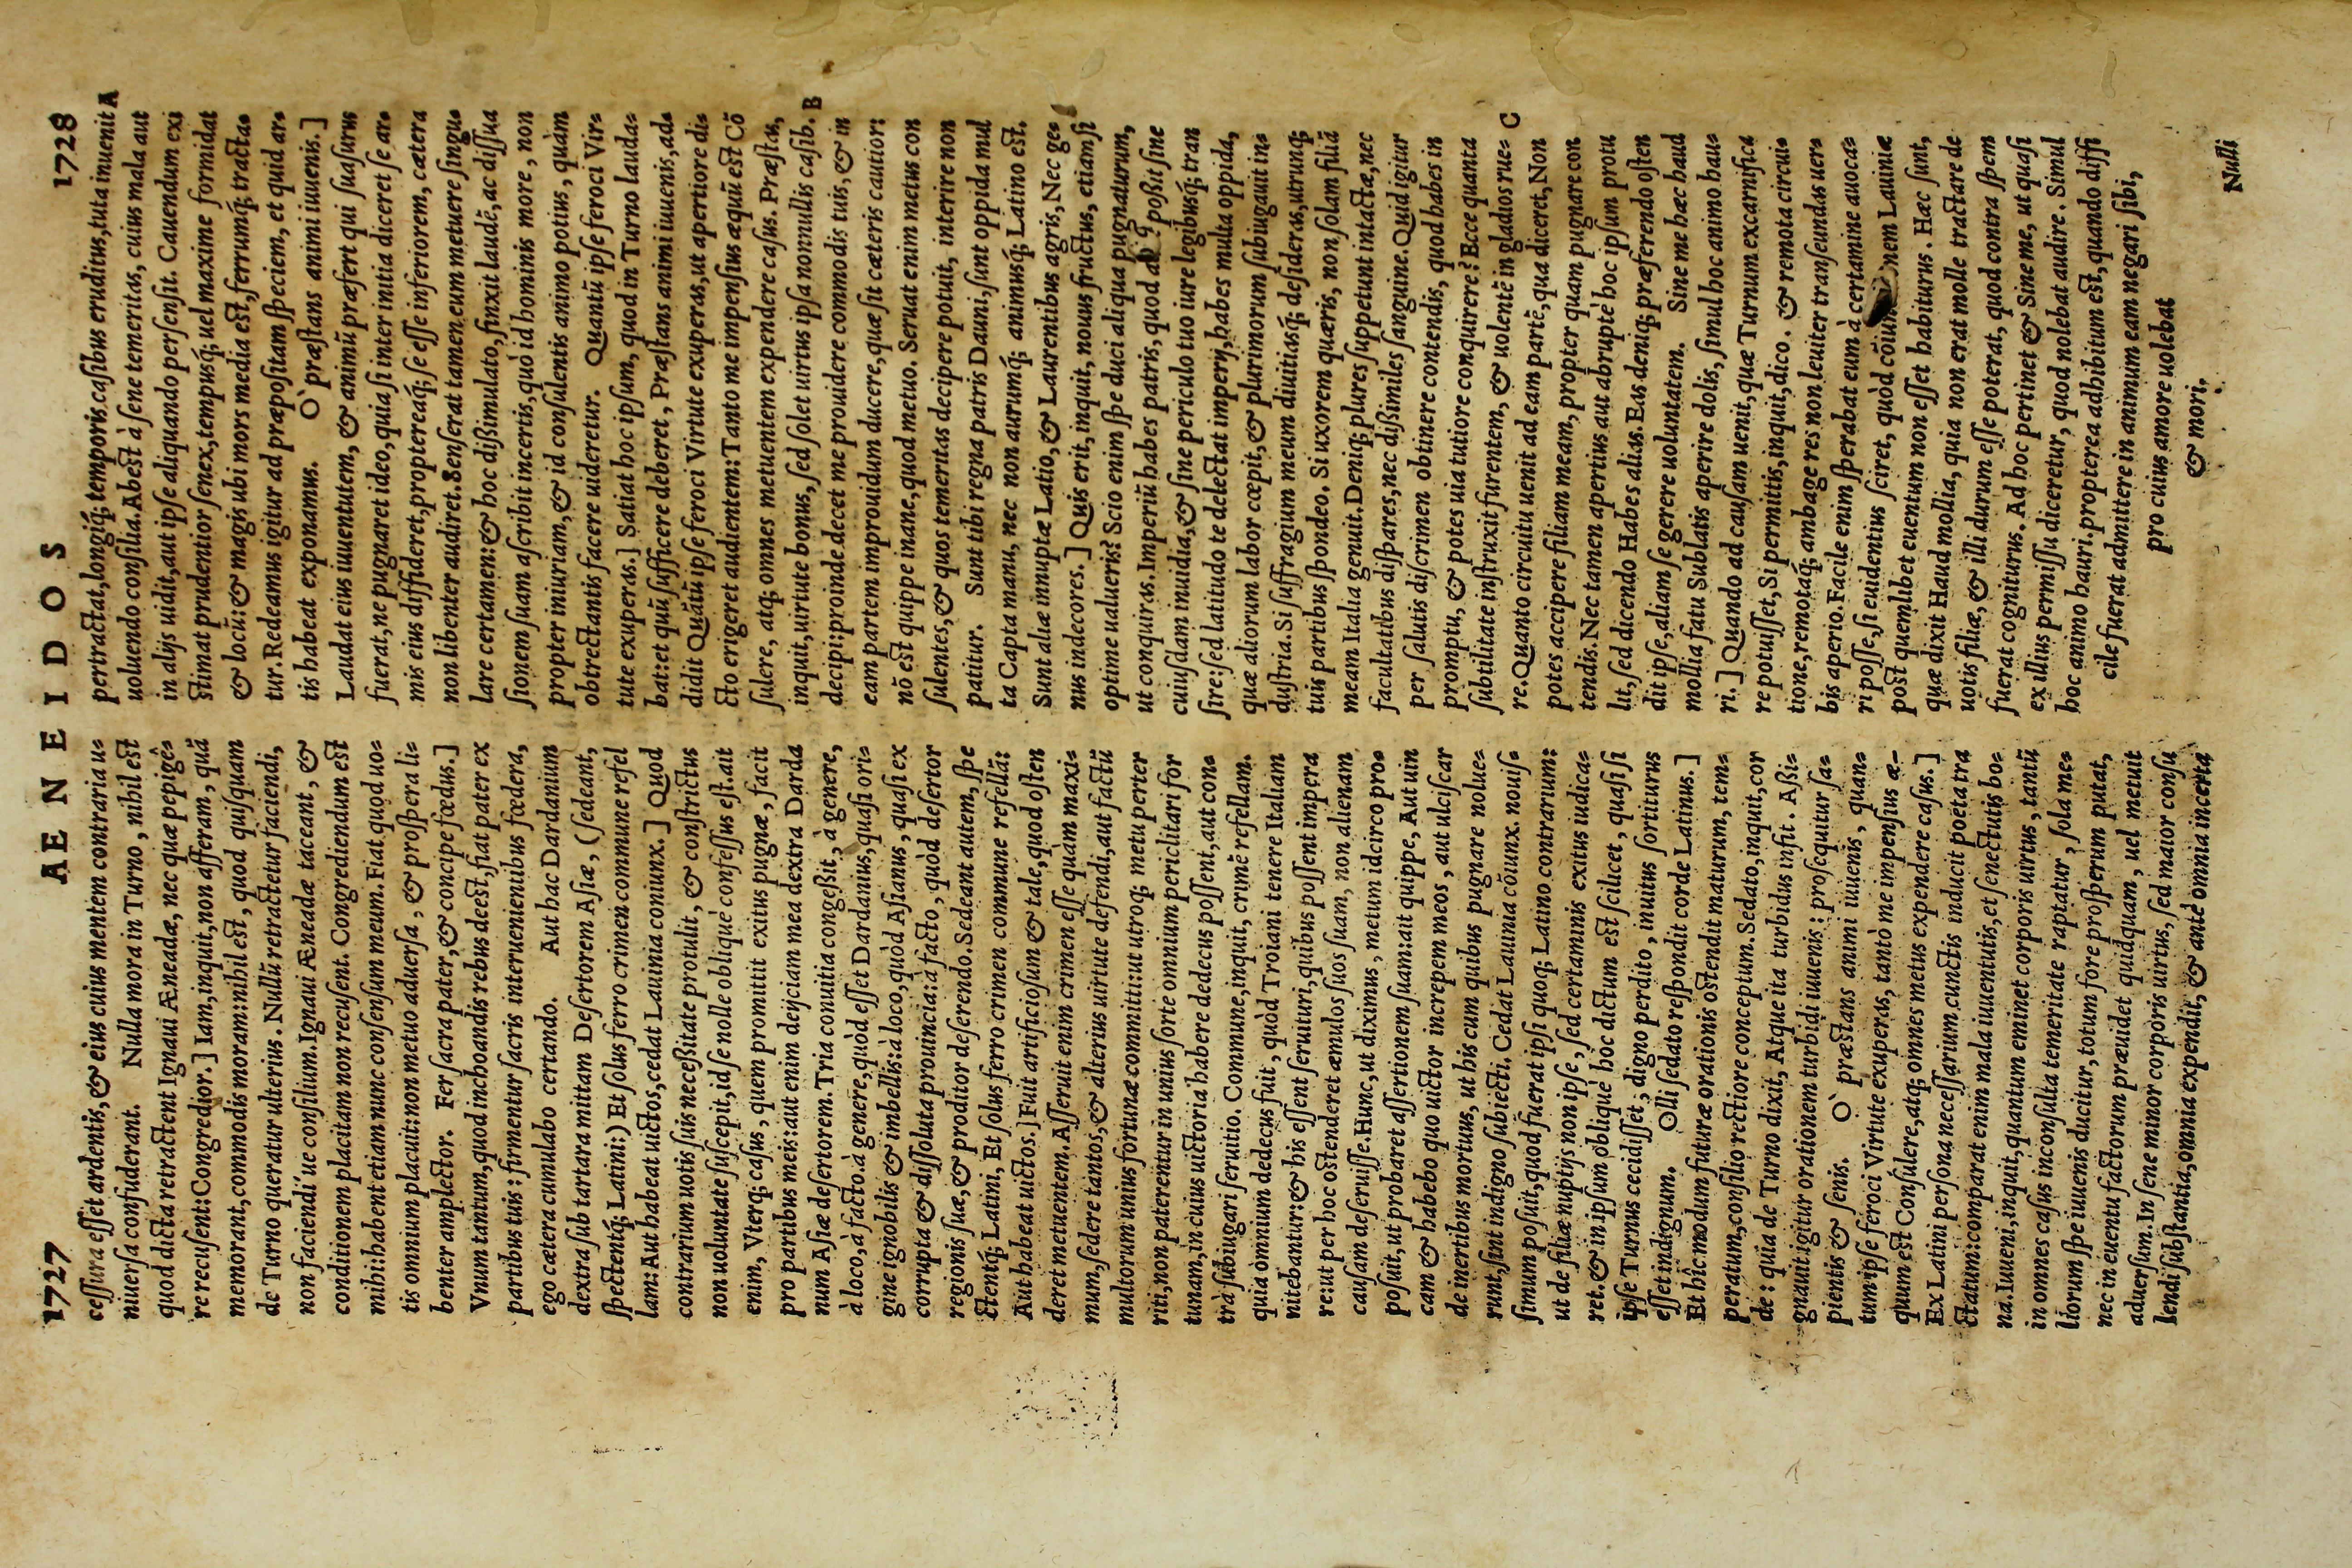 1727 AENEIDOS 1728
ceſſura eſſet ardentis, & eius cuius mentem contraria u⸗
niuerſa confuderant. Nulla mora in Turno, nihil eſt
quod dicta retractent Ignaui Æneadæ, nec quæ pepigê⸗
re recuſent: Congredior.] Iam, inquit, non afferam, quã
memorant, commodis moram: nihil eſt, quod quiſquam
de Turno queratur ulterius. Nullũ retractetur faciendi,
non faciendi ue conſilium. Ignaui Æneadæ taceant, &
conditionem placitam non recuſent. Congrediendum eſt
mihi: habent etiam nunc conſenſum meum. Fiat quod uo⸗
tis omnium placuit: non metuo aduerſa, & proſpera li⸗
benter amplector. Fer ſacra pater, & concipe fœdus.]
Vnum tantum, quod inchoandis rebus deeſt, fiat pater ex
partibus tuis: firmentur ſacris interuenientibus fœdera,
ego cætera cumulabo certando. Aut hac Dardanium
dextra ſub tartara mittam Deſertorem Aſiæ, (ſedeant,
ſpectentq́; Latini:) Et ſolus ferro crimen commune refel
lam: Aut habeat uictos, cedat Lauinia coniunx.] Quod
contrarium uotis ſuis neceßitate protulit, & conſtrictus
non uoluntate ſuſcepit, id ſe nolle obliquè confeſſus eſt. ait
enim, Vterq; caſus, quem promittit exitus pugnæ, facit
pro partibus meis: aut enim deijciam mea dextra Darda
num Aſiæ deſertorem. Tria conuitia congeßit, à genere,
à loco, à facto. à genere, quòd eſſet Dardanius, quaſi ori⸗
gine ignobilis & imbellis: à loco, quòd Aſianus, quaſi ex
corrupta & diſſoluta prouincia: à facto, quòd deſertor
regionis ſuæ, & proditor deſerendo. Sedeant autem, ſpe
ctentq́; Latini, Et ſolus ferro crimen commune refellã:
Aut habeat uictos.] Fuit artificioſum & tale, quod oſten
deret metuentem. Aſſeruit enim crimen eſſe quàm maxi⸗
mum, ſedere tantos, & alterius uirtute defendi, aut factũ
multorum unius fortunæ committi: ut utroq; metu perter
riti, non paterentur in unius ſorte omnium periclitari for
tunam, in cuius uictoria habere dedecus poſſent, aut con⸗
trà ſubiugari ſeruitio. Commune, inquit, crimẽ refellam.
quia omnium dedecus fuit, quòd Troiani tenere Italiam
nitebantur: & his eſſent ſeruituri, quibus poſſent impera
re: ut per hoc oſtenderet æmulos ſuos ſuam, non alienam
cauſam deſeruiſſe. Hunc, ut diximus, metum idcirco pro⸗
poſuit, ut probaret aſſertionem ſuam: ait quippe, Aut uin
cam & habebo quo uictor increpem meos, aut ulciſcar
de inertibus mortuus, ut his cum quibus pugnare nolue⸗
runt, ſint indigno ſubiecti. Cedat Lauinia cõiunx. nouiſ⸗
ſimum poſuit, quod fuerat ipſi quoq; Latino contrarium:
ut de filiæ nuptijs non ipſe, ſed certaminis exitus iudica⸗
ret. & in ipſum obliquè hoc dictum eſt ſcilicet, quaſi ſi
ipſe Turnus cecidiſſet, digno perdito, inuitus ſortiturus
eſſet indignum. Olli ſedato reſpondit corde Latinus.]
Et hîc modum futuræ orationis oſtendit maturum, tem⸗
peratum, conſilio rectiore conceptum. Sedato, inquit, cor
de: quia de Turno dixit, Atque ita turbidus infit. Aßi⸗
gnauit igitur orationem turbidi iuuenis: proſequitur ſa⸗
pientis & ſenis. O' præſtans animi iuuenis, quan⸗
tum ipſe feroci Virtute exuperas, tantò me impenſius æ⸗
quum eſt Conſulere, atq; omnes metus expendere caſus.]
Ex Latini perſona neceſſarium cunctis inducit poeta tra
ctatum: comparat enim mala iuuentutis, et ſenectutis bo⸗
na. Iuueni, inquit, quantum eminet corporis uirtus, tantũ
in omnes caſus inconſulta temeritate raptatur, ſola me⸗
liorum ſpe iuuenis ducitur, totum fore proſperum putat,
nec in euentu factorum præuidet quidquam, uel metuit
aduerſum. In ſene minor corporis uirtus, ſed maior conſu
lendi ſubſtantia, omnia expendit, & ante omnia incerta
pertractat, longiq́; temporis caſibus eruditus, tuta inuenit A
uoluendo conſilia. Abeſt à ſene temeritas, cuius mala aut
in alijs uidit, aut ipſe aliquando perſenſit. Cauendum exi
ſtimat prudentior ſenex, tempusq́; uel maxime formidat
& locũ: & magis ubi mors media eſt, ferrumq́; tracta⸗
tur. Redeamus igitur ad præpoſitam ſpeciem, et quid ar⸗
tis habeat exponamus. O' præſtans animi iuuenis.]
Laudat eius iuuentutem, & animũ præfert qui ſuaſurus
fuerat, ne pugnaret ideo, quia ſi inter initia diceret ſe ar⸗
mis eius diffideret, proptereaq́; ſe eſſe inferiorem, cætera
non libenter audiret. Senſerat tamen eum metuere ſingu⸗
lare certamen: & hoc dißimulato, finxit laudẽ, ac diſſua
ſionem ſuam aſcribit incertis, quò id hominis more, non
propter iniuriam, & id conſulentis animo potius, quàm
obtrectantis facere uideretur. Quantũ ipſe feroci Vir⸗
tute exuperas.] Satiat hoc ipſum, quod in Turno lauda⸗
bat: et quũ ſufficere deberet, Præſtans animi iuuenis, ad⸗
didit Quãtũ ipſe feroci Virtute exuperas, ut apertiore di⸗
cto erigeret audientem: Tanto me impenſius æquũ eſt Cõ
ſulere, atq; omnes metuentem expendere caſus. Præſtu,
inquit, uirtute bonus, ſed ſolet uirtus ipſa nonnullis caſib. B
decipi: proinde decet me prouidere commodis tuis, & in
eam partem improuidum ducere, quæ ſit cæteris cautior:
nõ eſt quippe inane, quod metuo. Seruat enim metus con
ſulentes, & quos temeritas decipere potuit, interire non
patitur. Sunt tibi regna patris Dauni, ſunt oppida mul
ta Capta manu, nec non aurumq́; animusq́; Latino eſt.
Sunt aliæ innuptæ Latio, & Laurentibus agris, Nec ge⸗
nus indecores.] Quis erit, inquit, nouus fructus, etiamſi
optime ualueris? Scio enim ſpe duci aliqua pugnaturum,
ut conquiras. Imperiũ habes patris, quod poßit ſine
cuiuſdam inuidia, & ſine periculo tuo iure legibusq́; tran
ſire: ſed latitudo te delectat imperij, habes multa oppida,
quæ aliorum labor cœpit, & plurimorum ſubiugauit in⸗
duſtria. Si ſuffragium meum diuitiasq́; deſideras, utrunq;
tuis partibus ſpondeo. Si uxorem quæris, non ſolam filiã
meam Italia genuit. Deniq; plures ſuppetunt intactæ, nec
facultatibus diſpares, nec dißimiles ſanguine. Quid igitur
per ſalutis diſcrimen obtinere contendis, quod habes in
promptu, & potes uia tutiore conquirere? Ecce quanta
ſubtilitate inſtruxit furentem, & uolentẽ in gladios rue⸗ C
re. Quanto circuitu uenit ad eam partẽ, qua diceret, Non
potes accipere filiam meam, propter quam pugnare con
tendis. Nec tamen apertius aut abrupiè hoc ipſum protu
lit, ſed dicendo Habes alias. Eas deniq; præferendo oſten
dit ipſe, aliam ſe gerere uoluntatem. Sine me hæc haud
mollia fatu Sublatis aperire dolis, ſimul hoc animo hau⸗
ri.] Quando ad cauſam uenit, quæ Turnum excarnifica
re potuiſſet, Si permittis, inquit, dico. & remota circui⸗
tione, remotaq́; ambage res non leuiter tranſeundas uer⸗
bis aperio. Facile enim ſperabat eum à certamine auoca⸗
ri poſſe, ſi euidentius ſciret, quòd nem Lauiniæ
poſt quemlibet euentum non eſſet habiturus. Hac ſunt,
quæ dixit Haud mollia, quia non erat molle tractare de
uotis filiæ, & illi durum eſſe poterat, quod contra ſpem
fuerat cogniturus. Ad hoc pertinet & Sine me, ut quaſi
ex illius permiſſu diceretur, quod nolebat audire. Simul
hoc animo hauri. propterea adhibitum eſt, quando diffi
cile fuerat admittere in animum eam negari ſibi,
pro cuius amore uolebat
& mori.
Nulli